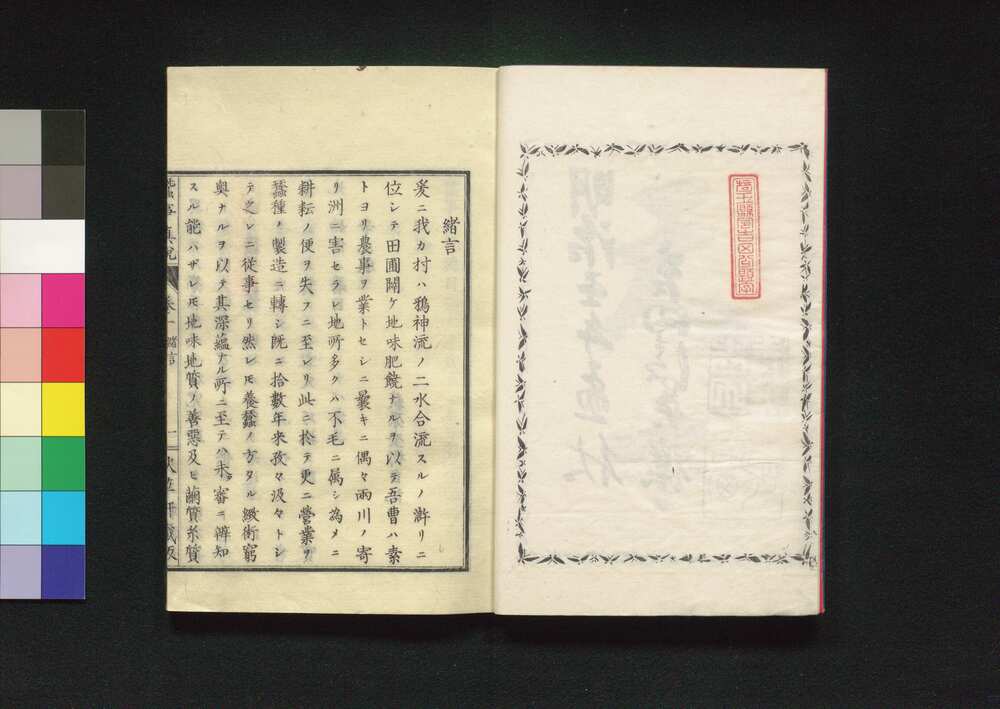 緒言
爰ニ我カ村ハ鴉神流ノ二水合流スルノ滸リニ
位シテ田圃闢ケ地味肥饒ナルヲ以テ吾曹ハ素
トヨリ農事ヲ業トセシニ曩キニ偶々兩川ノ寄
リ洲ニ害セラレ地所多クハ不毛ニ属シ為メニ
耕耘ノ便ヲ失フニ至レリ此ニ於テ更ニ營業ヲ
蠶種ノ製造ニ轉シ既ニ拾數年来孜々汲々トシ
テ之レニ從事セリ然レ𪜈養蠶ノ方タル緻術窮
奥ナルヲ以テ其深蘊ナル所ニ至テハ未タ審ニ辨知
スル能ハザレ𪜈地味地質ノ善惡及ヒ繭質糸質
卷一 緒言 一